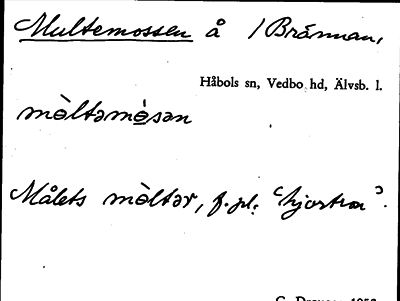 Multemossen å / Brännan,
Håbols sn, Vedbo hd, Älvsb. l.
mòltəmòsən
Målets mòltər, f. pl. "hjortron".